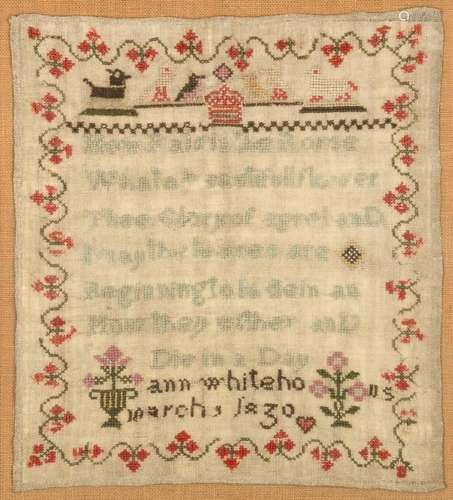 How Fair is the Rorse
What a flower
Thee Glory of aprel anD
may the leaves are
Beginning to fa dein an
Hour they wither anD
Die in a Day
ann whiteho
us
march 1830